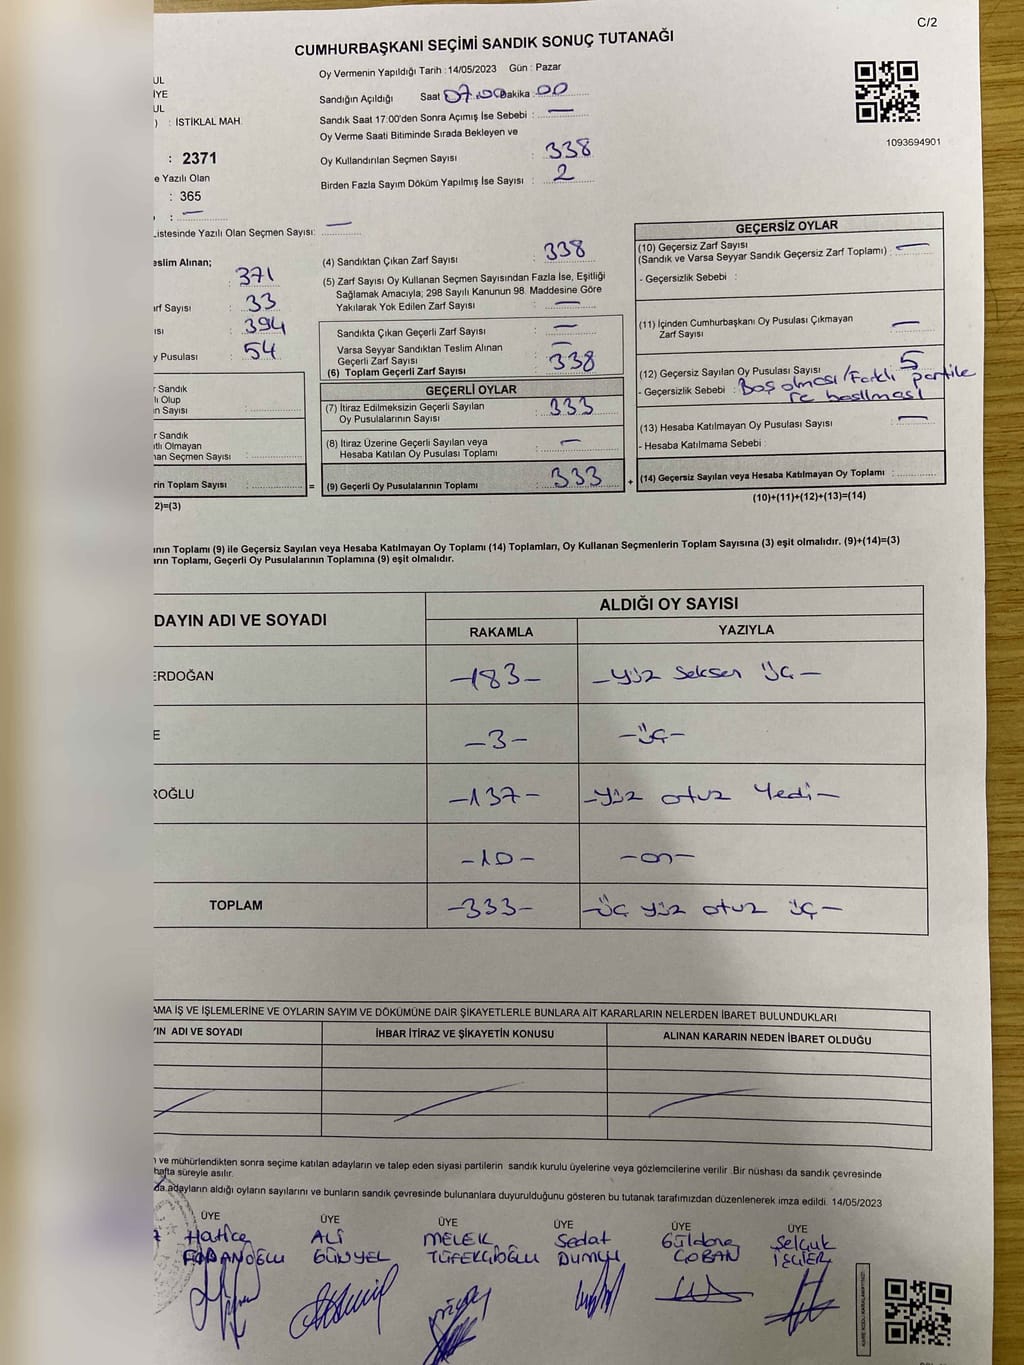 C/2
CUMHURBAŞKANI SEÇİMİ SANDIK SONUÇ TUTANAĞI
Oy Vermenin Yapıldığı Tarih : 14/05/2023 Gün : Pazar
UL
İYE
UL
) : İSTİKLAL MAH.
: 2371
e Yazılı Olan
: 365
: —
Listesinde Yazılı Olan Seçmen Sayısı: —
Sandığın Açıldığı Saat 07.00 Dakika : 00
Sandık Saat 17:00'den Sonra Açımış İse Sebebi : —
Oy Verme Saati Bitiminde Sırada Bekleyen ve
Oy Kullandırılan Seçmen Sayısı : 338
Birden Fazla Sayım Döküm Yapılmış İse Sayısı : 2
1093694901
eslim Alınan;
: 371
arf Sayısı : 33
ısı : 394
y Pusulası : 54
r Sandık
lı Olup
n Sayısı :
r Sandık
tlı Olmayan
nan Seçmen Sayısı :
rin Toplam Sayısı : =
2)=(3)
(4) Sandıktan Çıkan Zarf Sayısı : 338
(5) Zarf Sayısı Oy Kullanan Seçmen Sayısından Fazla İse, Eşitliği
Sağlamak Amacıyla, 298 Sayılı Kanunun 98. Maddesine Göre
Yakılarak Yok Edilen Zarf Sayısı : —
Sandıkta Çıkan Geçerli Zarf Sayısı : —
Varsa Seyyar Sandıktan Teslim Alınan
Geçerli Zarf Sayısı : —
(6) Toplam Geçerli Zarf Sayısı : 338
GEÇERLİ OYLAR
(7) İtiraz Edilmeksizin Geçerli Sayılan
Oy Pusulalarının Sayısı : 333
(8) İtiraz Üzerine Geçerli Sayılan veya
Hesaba Katılan Oy Pusulası Toplamı : —
(9) Geçerli Oy Pusulalarının Toplamı : 333 +
GEÇERSİZ OYLAR
(10) Geçersiz Zarf Sayısı
(Sandık ve Varsa Seyyar Sandık Geçersiz Zarf Toplamı) : —
- Geçersizlik Sebebi :
(11) İçinden Cumhurbaşkanı Oy Pusulası Çıkmayan
Zarf Sayısı : —
(12) Geçersiz Sayılan Oy Pusulası Sayısı : 5
- Geçersizlik Sebebi : Boş olması/Farklı partile
re basılması
(13) Hesaba Katılmayan Oy Pusulası Sayısı : —
- Hesaba Katılmama Sebebi :
(14) Geçersiz Sayılan veya Hesaba Katılmayan Oy Toplamı :
(10)+(11)+(12)+(13)=(14)
ının Toplamı (9) ile Geçersiz Sayılan veya Hesaba Katılmayan Oy Toplamı (14) Toplamları, Oy Kullanan Seçmenlerin Toplam Sayısına (3) eşit olmalıdır. (9)+(14)=(3)
arın Toplamı, Geçerli Oy Pusulalarının Toplamına (9) eşit olmalıdır.
DAYIN ADI VE SOYADI
ALDIĞI OY SAYISI
RAKAMLA YAZIYLA
ERDOĞAN -183- -yüz seksen üç-
E -3- -üç-
ROĞLU -137- -yüz otuz yedi-
-10- -on-
TOPLAM -333- -üç yüz otuz üç-
AMA İŞ VE İŞLEMLERİNE VE OYLARIN SAYIM VE DÖKÜMÜNE DAİR ŞİKAYETLERLE BUNLARA AİT KARARLARIN NELERDEN İBARET BULUNDUKLARI
IN ADI VE SOYADI İHBAR İTİRAZ VE ŞİKAYETİN KONUSU ALINAN KARARIN NEDEN İBARET OLDUĞU
ı ve mühürlendikten sonra seçime katılan adayların ve talep eden siyasi partilerin sandık kurulu üyelerine veya gözlemcilerine verilir .Bir nüshası da sandık çevresinde
hafta süreyle asılır.
da adayların aldığı oyların sayılarını ve bunların sandık çevresinde bulunanlara duyurulduğunu gösteren bu tutanak tarafımızdan düzenlenerek imza edildi. 14/05/2023
ÜYE ÜYE ÜYE ÜYE ÜYE ÜYE
Hatice ALİ MELEK Sedat Güldane Selçuk
GÜNYEL TÜFEKÇİOĞLU DUMLU ÇOBAN İŞLİER